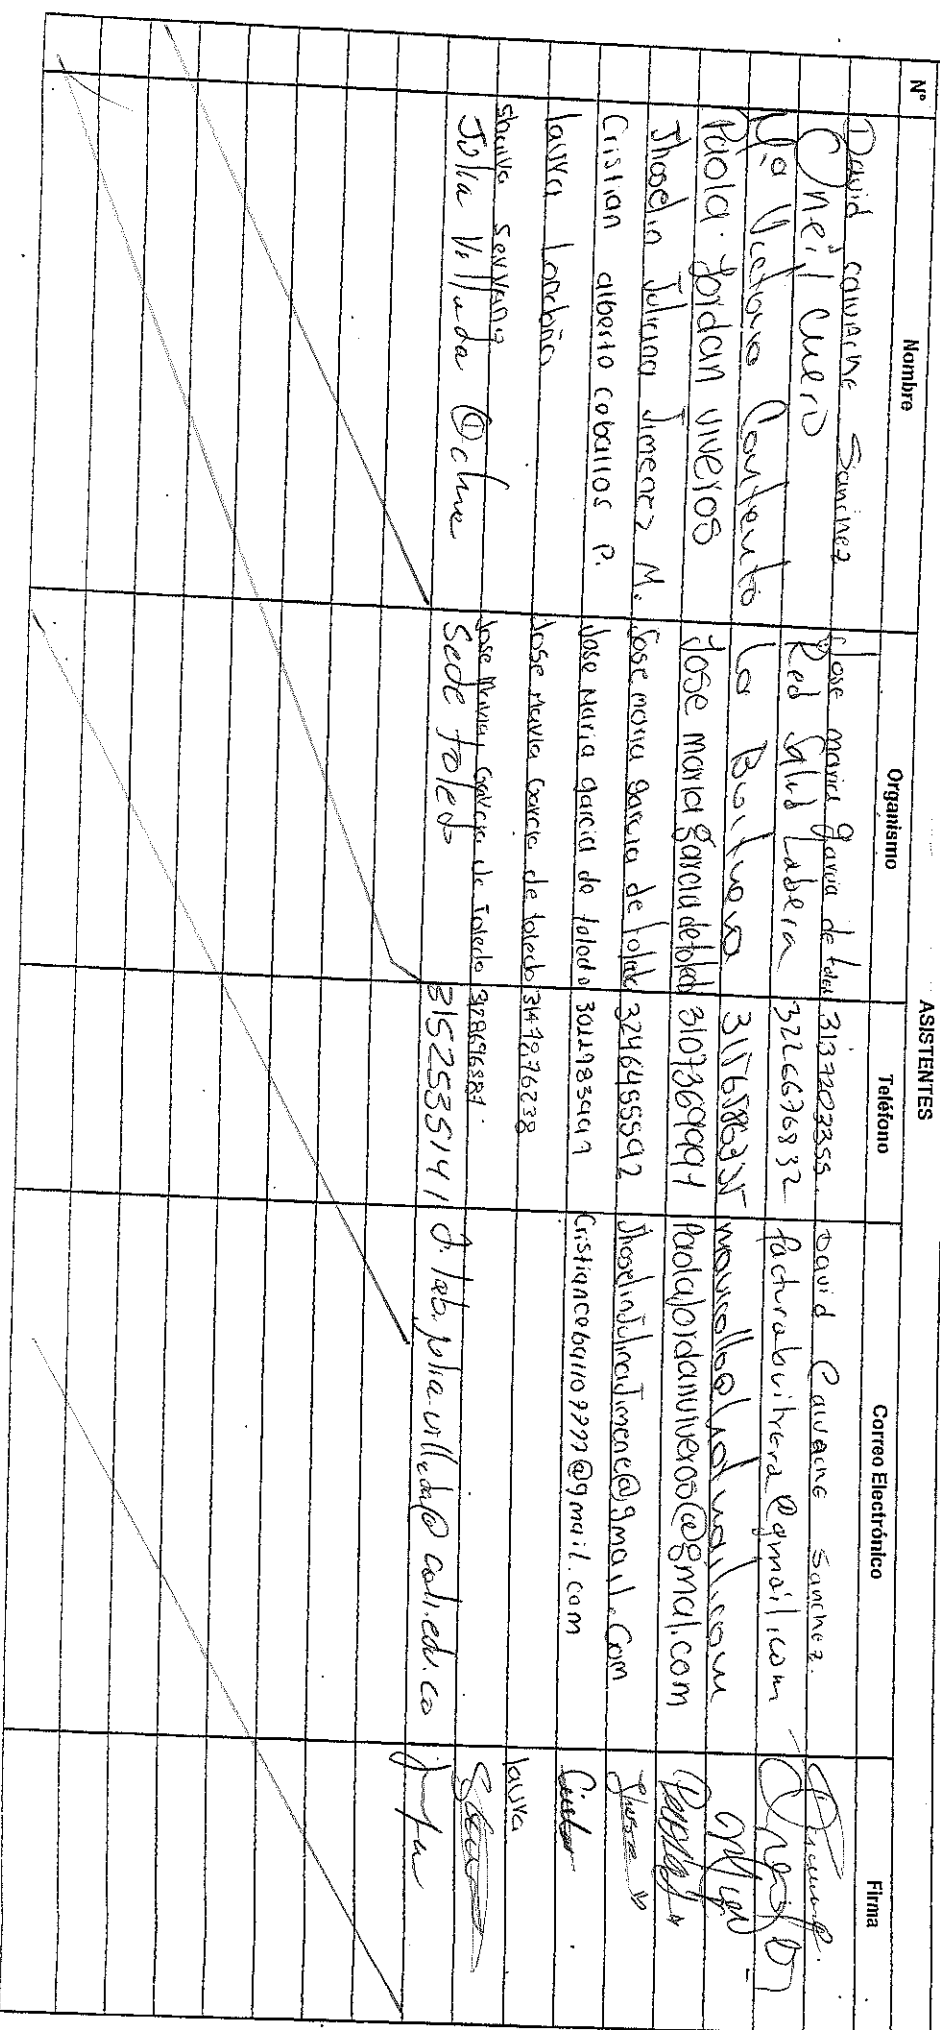 ASISTENTES
Nº Nombre Organismo Teléfono Correo Electrónico Firma
David Caluache Sanchez Jose maria Garcia de toled 3137202355. David Caluache Sanchez.
Oneil Cuero Red Salud Ladera 3226676832 facturabuitrera@gmail.com Oneil
Ma Victoria Contento La Buitrera
Paola Jordan viveros Jose maria Garcia de toled 3107369991 Paolajordanviveros@gmal.com
Jhoselin Juliana Jimenez M. Jose maria garcia de tolde 3246455592 Jhoselinjulinajimene@gmail.com
Cristian alberto caballos P. Jose Maria garcia de tolado Cristianceballo9999@gmail.com
laura Londoño Jose Maria Garcia de toledo 3147876238 laura
Jose Maria Garcia de Toledo
Julia Villada Ochoa Sede Toledo 3152535141 cali.edu.co